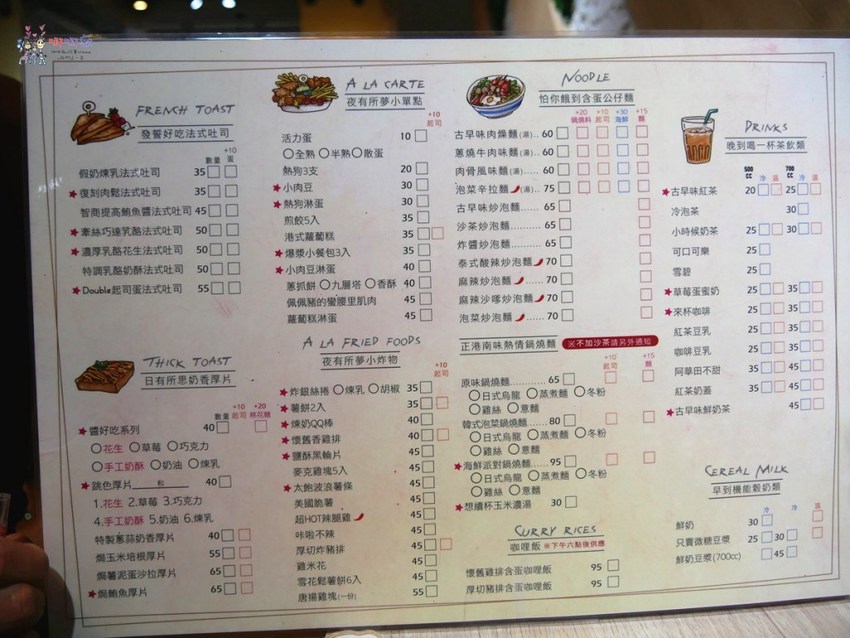 FRENCH TOAST
發誓好吃法式吐司
數量 +10 蛋
假奶煉乳法式吐司 35
★復刻肉鬆法式吐司 35
智商提高鮪魚醬法式吐司 45
★牽絲巧達乳酪法式吐司 50
★濃厚乳酪花生法式吐司 50
特調乳酪奶酥法式吐司 50
★Double起司蛋法式吐司 55
THICK TOAST
日有所思奶香厚片
數量 +10 起司 +20 棉花糖
★醬好吃系列 40
○花生 ○草莓 ○巧克力
○手工奶酥 ○奶油 ○煉乳
★跳色厚片 40
1.花生 2.草莓 3.巧克力
4.手工奶酥 5.奶油 6.煉乳
特製蔥蒜奶香厚片 40
焗玉米培根厚片 55
焗薯泥蛋沙拉厚片 65
★焗鮪魚厚片 65
A LA CARTE
夜有所夢小單點
+10 起司
活力蛋 10
○全熟 ○半熟 ○散蛋
熱狗3支 20
★小肉豆 30
★熱狗淋蛋 30
煎餃5入 35
港式蘿蔔糕 35
★爆漿小餐包3入 40
★小肉豆淋蛋 40
蔥抓餅 ○九層塔 ○香酥 40
佩佩豬的蠻腰里肌肉 45
蘿蔔糕淋蛋 45
A LA FRIED FOODS
夜有所夢小炸物
+10 起司
★炸銀絲捲 ○煉乳 ○胡椒 35
★薯餅2入 35
★煉奶QQ棒 40
★懷舊香雞排 40
★鹽酥黑輪片 45
麥克雞塊5入 45
★太飽波浪薯條 45
美國脆薯 45
超HOT辣腿雞 45
咔啦不辣 45
厚切炸豬排 45
雞米花 45
雪花鬆薯餅6入 45
唐揚雞塊(一份) 55
NOODLE
怕你餓到含蛋公仔麵
+20 鍋燒料 +10 起司 +30 海鮮 +15 麵
古早味肉燥麵(湯) 60
蔥燒牛肉味麵(湯) 60
肉骨風味麵(湯) 60
泡菜辛拉麵(湯) 75
古早味炒泡麵 65
沙茶炒泡麵 65
炸醬炒泡麵 65
泰式酸辣炒泡麵 70
麻辣炒泡麵 70
麻辣沙嗲炒泡麵 70
泡菜炒泡麵 70
正港南味熱情鍋燒麵 ※不加沙茶請另外通知
+10 起司 +15 麵
原味鍋燒麵 65
○日式烏龍 ○蒸煮麵 ○冬粉
○雞絲 ○意麵
韓式泡菜鍋燒麵 80
○日式烏龍 ○蒸煮麵 ○冬粉
○雞絲 ○意麵
★海鮮派對鍋燒麵 95
○日式烏龍 ○蒸煮麵 ○冬粉
○雞絲 ○意麵
★想續杯玉米濃湯 30
CURRY RICES
咖哩飯 ※下午六點後供應
懷舊雞排含蛋咖哩飯 95
厚切豬排含蛋咖哩飯 95
DRINKS
晚到喝一杯茶飲類
500 CC 冷 溫 700 CC 冷 溫
★古早味紅茶 20 25
冷泡茶 30
小時候奶茶 25 30
可口可樂 25
雪碧 25
★草莓蛋蜜奶 25 35
★來杯咖啡 25 35
紅茶豆乳 25 35
咖啡豆乳 25 35
阿華田不甜 35 45
紅茶奶蓋 35 45
★古早味鮮奶茶 45
CEREAL MILK
早到機能穀奶類
冷 冷 溫
鮮奶 30
只賣微糖豆漿 25 30
鮮奶豆漿(700cc) 45